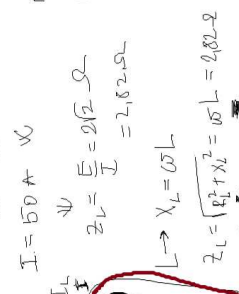 I = 50 A
I_L
Z_L = E/I = 2√2 Ω
= 2,82 Ω
L → X_L = ωL
Z_L = √(R_L² + X_L²) = ωL = 2,82 Ω